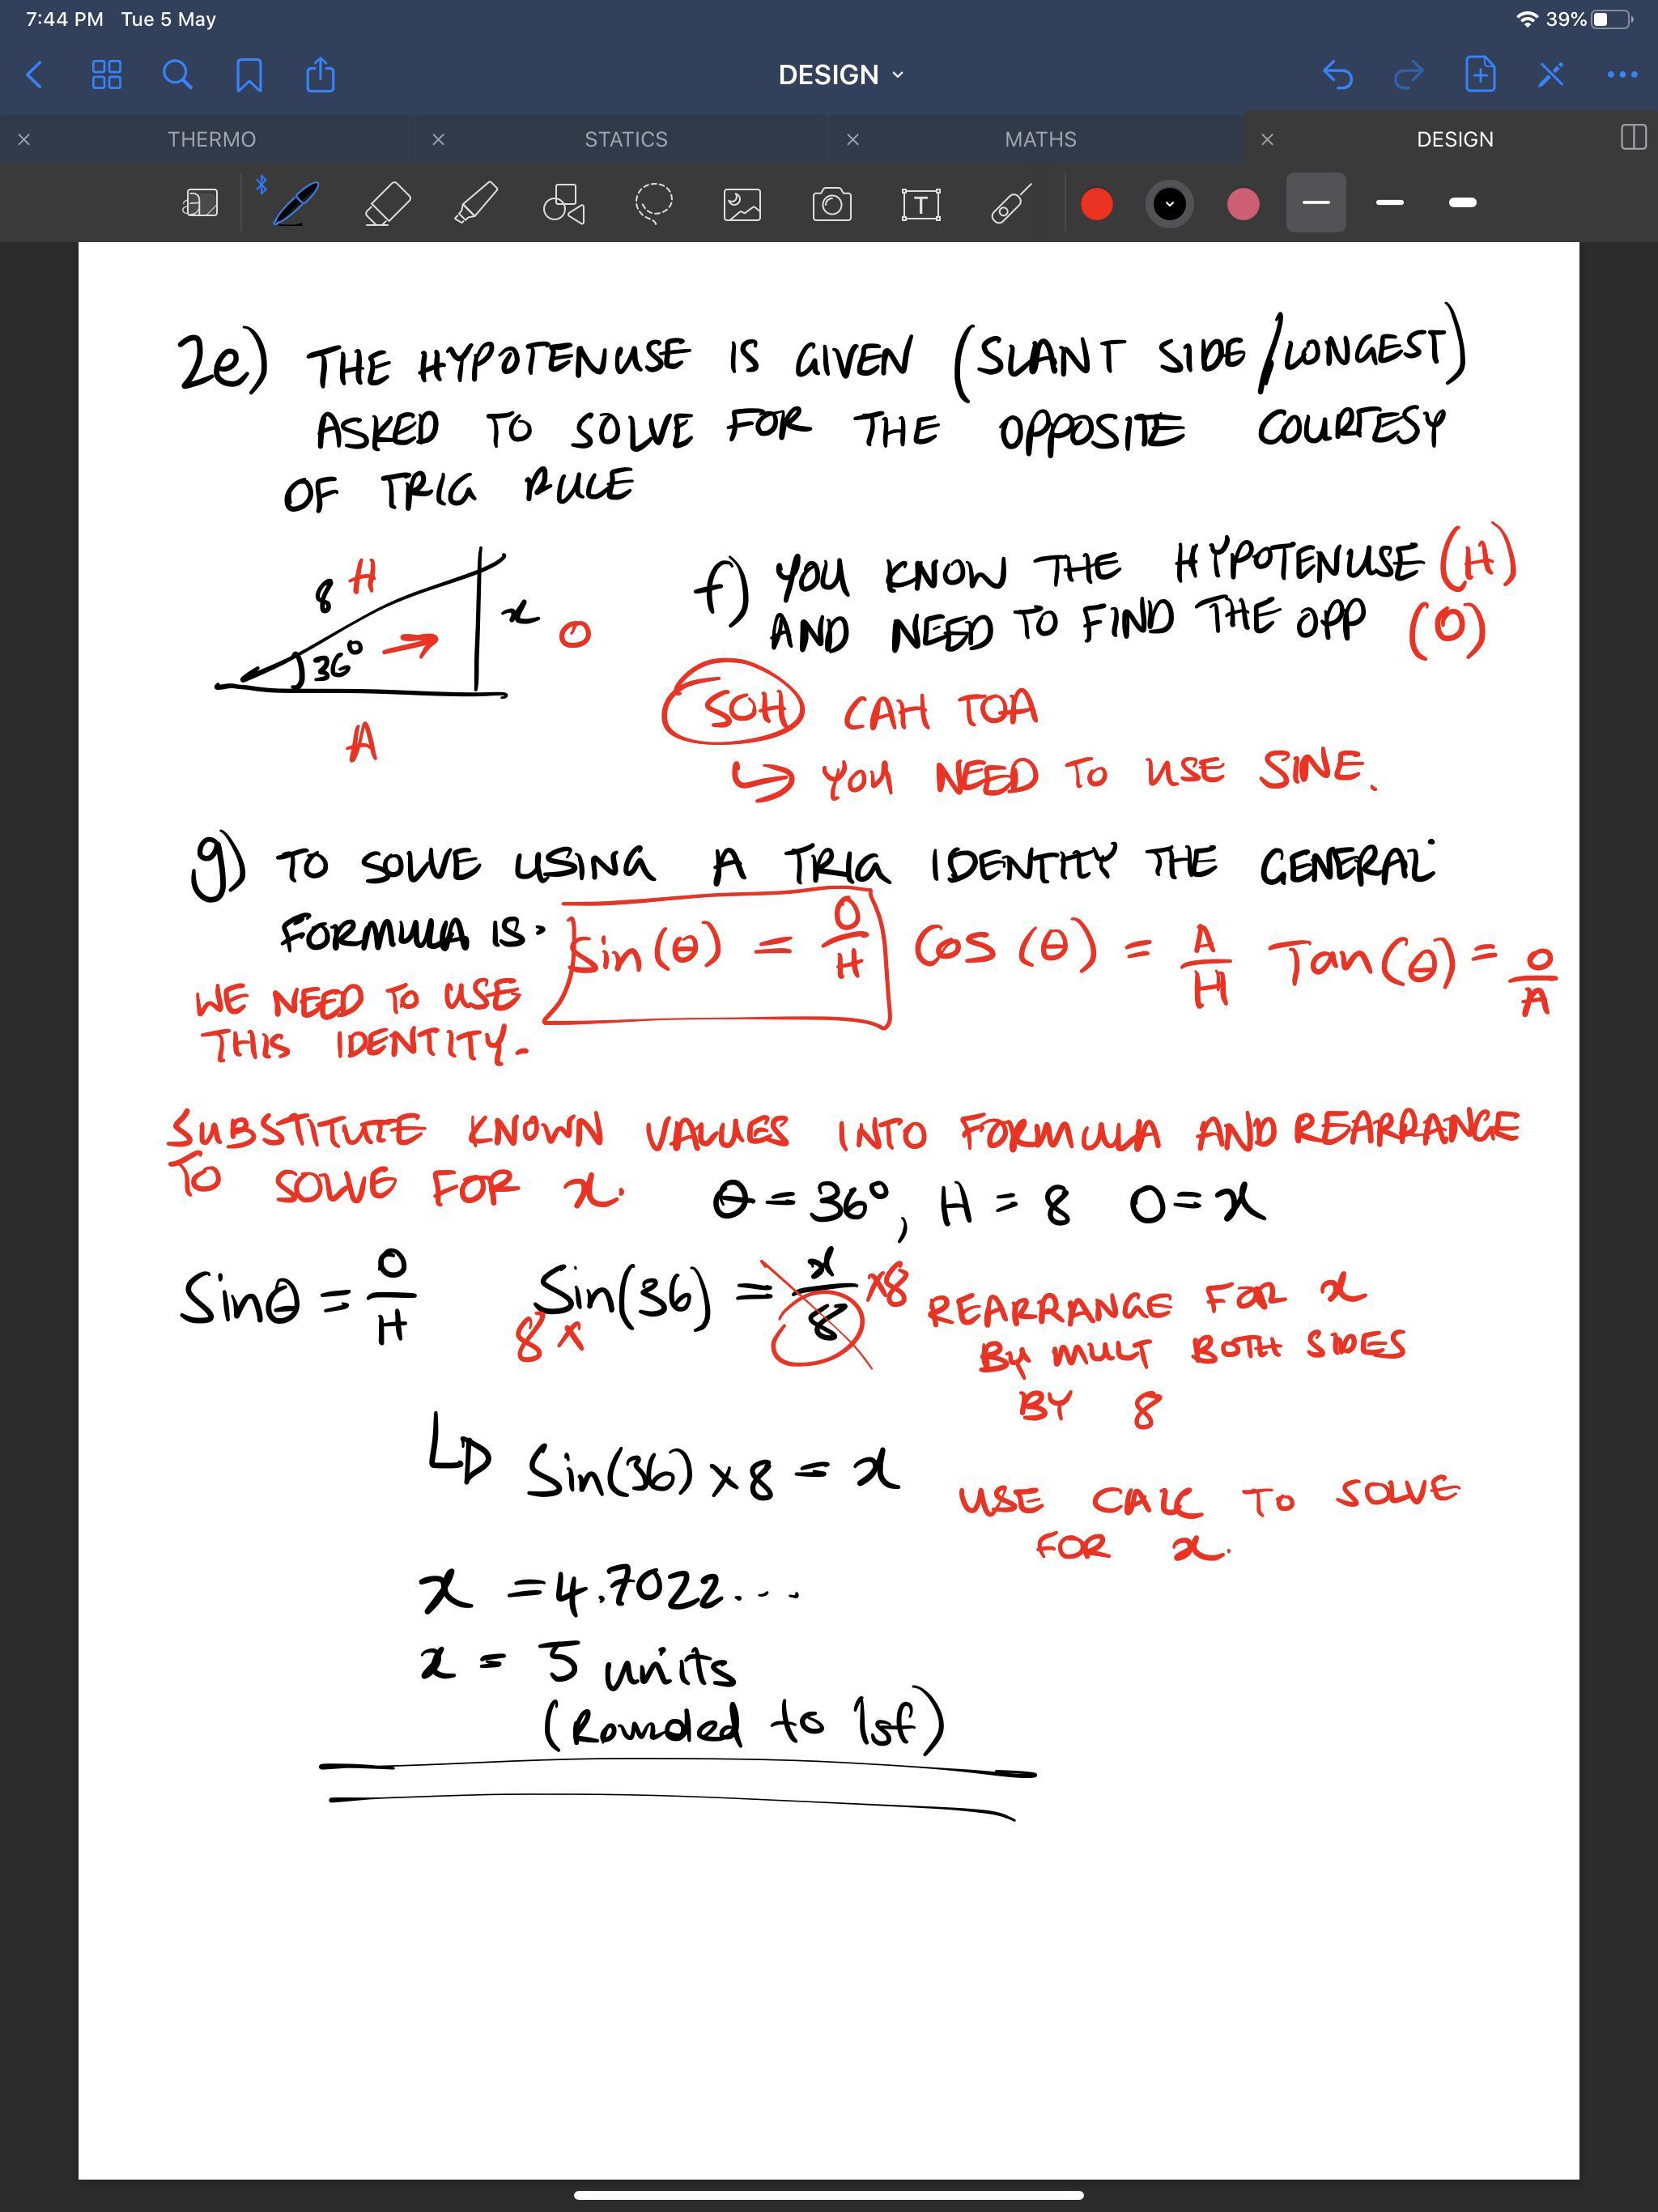 7:44 PM Tue 5 May 39%
DESIGN
THERMO STATICS MATHS DESIGN
2e) THE HYPOTENUSE IS GIVEN (SLANT SIDE/LONGEST)
ASKED TO SOLVE FOR THE OPPOSITE COURTESY
OF TRIG RULE
8 H
36° → x O
A
f) YOU KNOW THE HYPOTENUSE (H)
AND NEED TO FIND THE OPP (O)
SOH CAH TOA
↪ YOU NEED TO USE SINE.
g) TO SOLVE USING A TRIG IDENTITY THE GENERAL
FORMULA IS: Sin(θ) = O/H Cos(θ) = A/H Tan(θ) = O/A
WE NEED TO USE
THIS IDENTITY.
SUBSTITUTE KNOWN VALUES INTO FORMULA AND REARRANGE
TO SOLVE FOR x. θ = 36°, H = 8 O = x
Sinθ = O/H 8 x Sin(36) = x/8 x8 REARRANGE FOR x
BY MULT BOTH SIDES
BY 8
Sin(36) x 8 = x USE CALC TO SOLVE
FOR x.
x = 4.7022...
x = 5 units
(Rounded to 1sf)